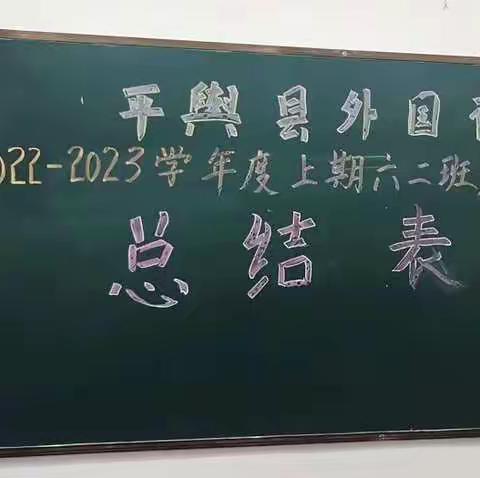 平舆县外国
022-2023学年度上期六二班
总结表